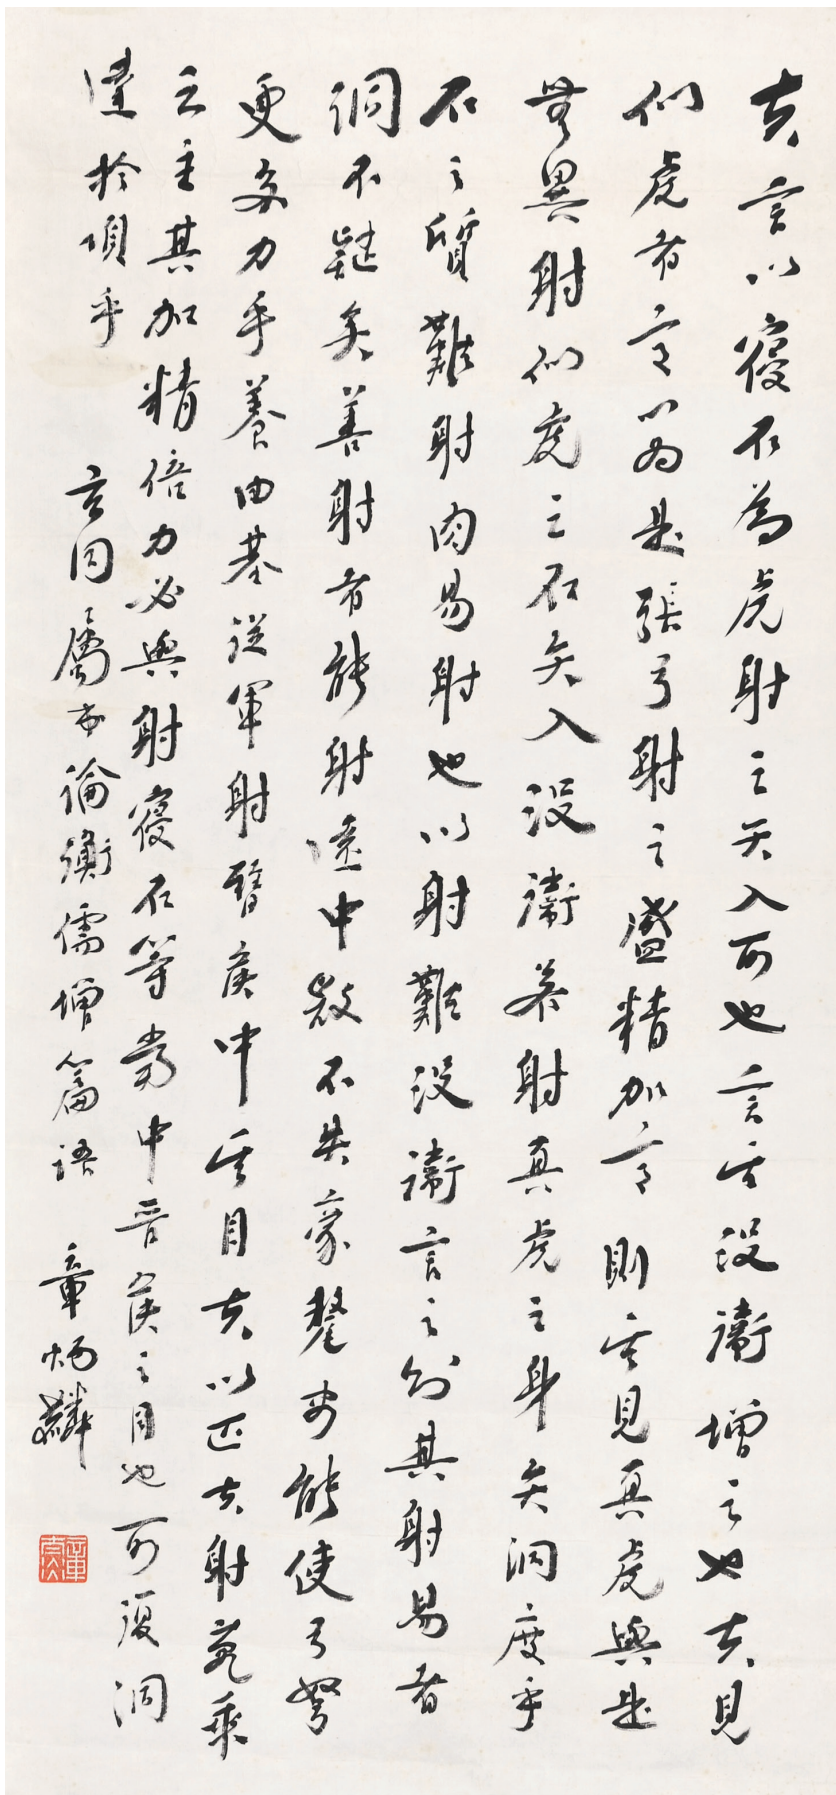 夫言以寑石為虎射之矢入可也言其没衞增之也夫見
侣虎者意以為是張弓射之盛精加意則其見真虎與是
無異射侣虎之石矢入没衞若射真虎之身矢洞度乎
石之質難射肉易射也以射難没衞言之則其射易者
洞不疑矣善射者能射遠中微不失豪氂安能使弓弩
更多力乎養由基從軍射晉侯中其目夫以匹夫射萬乘
之主其加精倍力必與射寑石等當中晉侯之目也可復洞
達於項乎 玄同屬書論衡儒增篇語 章炳麟